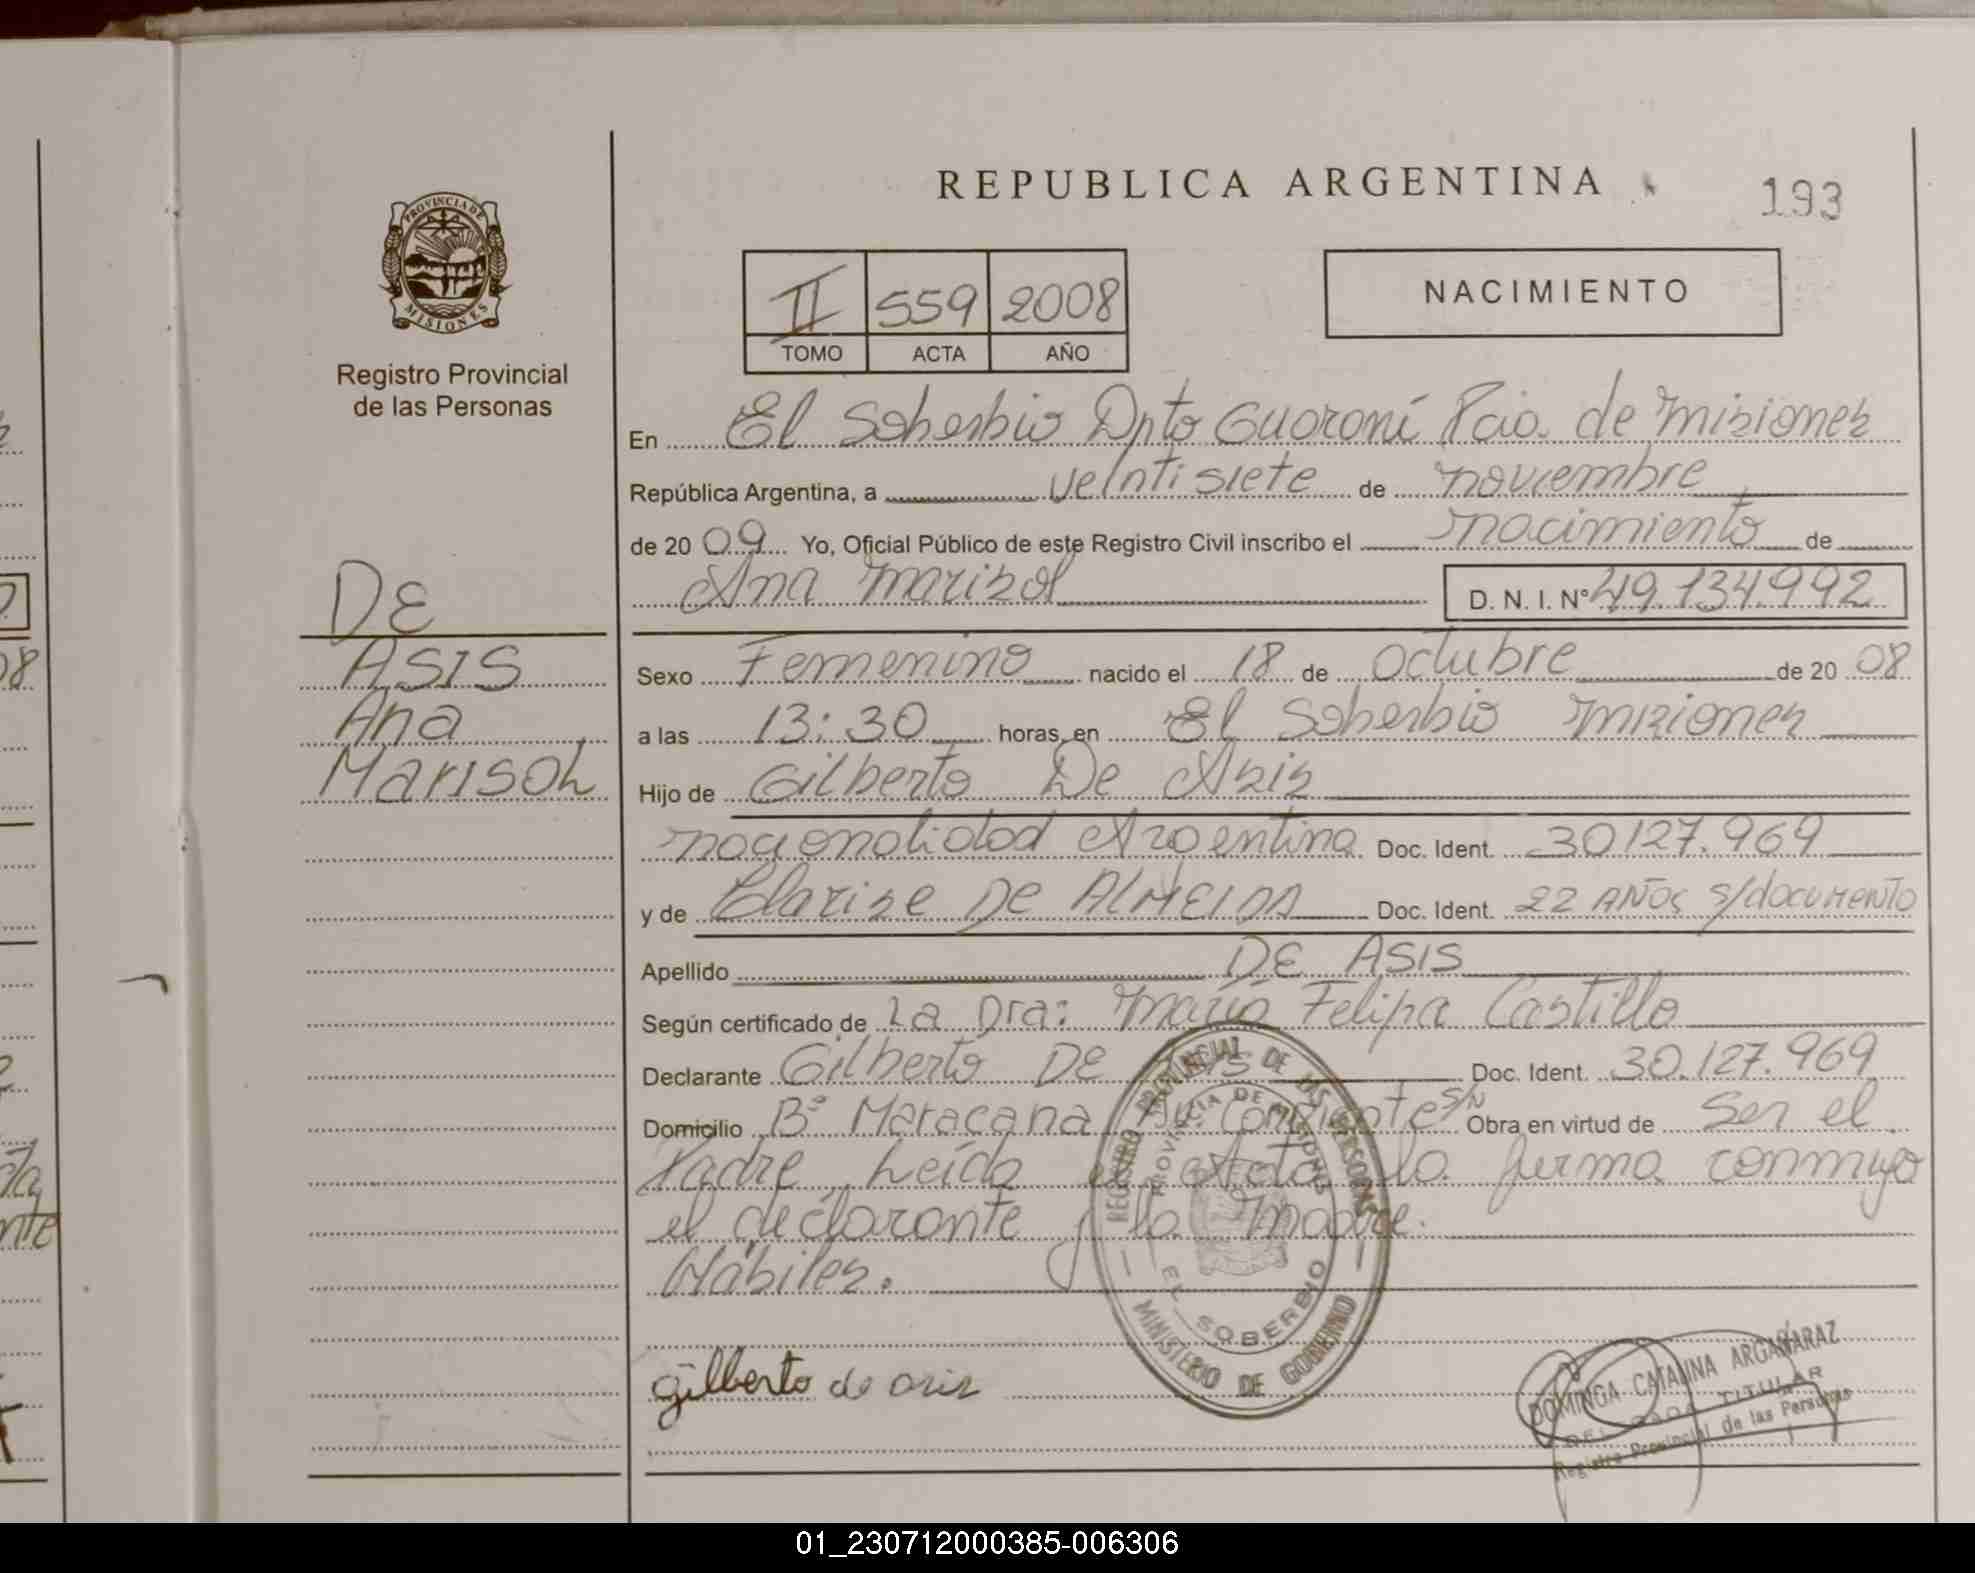 REPUBLICA ARGENTINA
193
PROVINCIA DE
MISIONES
Registro Provincial
de las Personas
II 559 2008
TOMO ACTA AÑO
NACIMIENTO
En El Soberbio Dpto Guaraní Pcia. de Misiones
República Argentina, a veintisiete de noviembre
de 2009 Yo, Oficial Público de este Registro Civil inscribo el nacimiento de
Ana Marisol D. N. I. Nº 49.134.992
DE
ASIS
Ana
Marisol
Sexo Femenino nacido el 18 de Octubre de 2008
a las 13:30 horas, en El Soberbio Misiones
Hijo de Gilberto De Asis
nacionalidad Argentina Doc. Ident. 30127.969
y de Clarise De ALMEIDA Doc. Ident. 22 AÑOS s/documento
Apellido DE ASIS
Según certificado de La Dra: María Felipa Castillo
Declarante Gilberto De Asis Doc. Ident. 30.127.969
Domicilio Bº Maracana S/N Obra en virtud de Ser el
Padre Leída el Acta la firma conmigo
el declarante y la Madre.
Hábiles.
gilberto de asis
REGISTRO PROVINCIAL DE LAS PERSONAS
PROVINCIA DE MISIONES
EL SOBERBIO
MINISTERIO DE GOBIERNO
DOMINGA CATALINA ARGAÑARAZ
TITULAR
Registro Provincial de las Personas
01_230712000385-006306